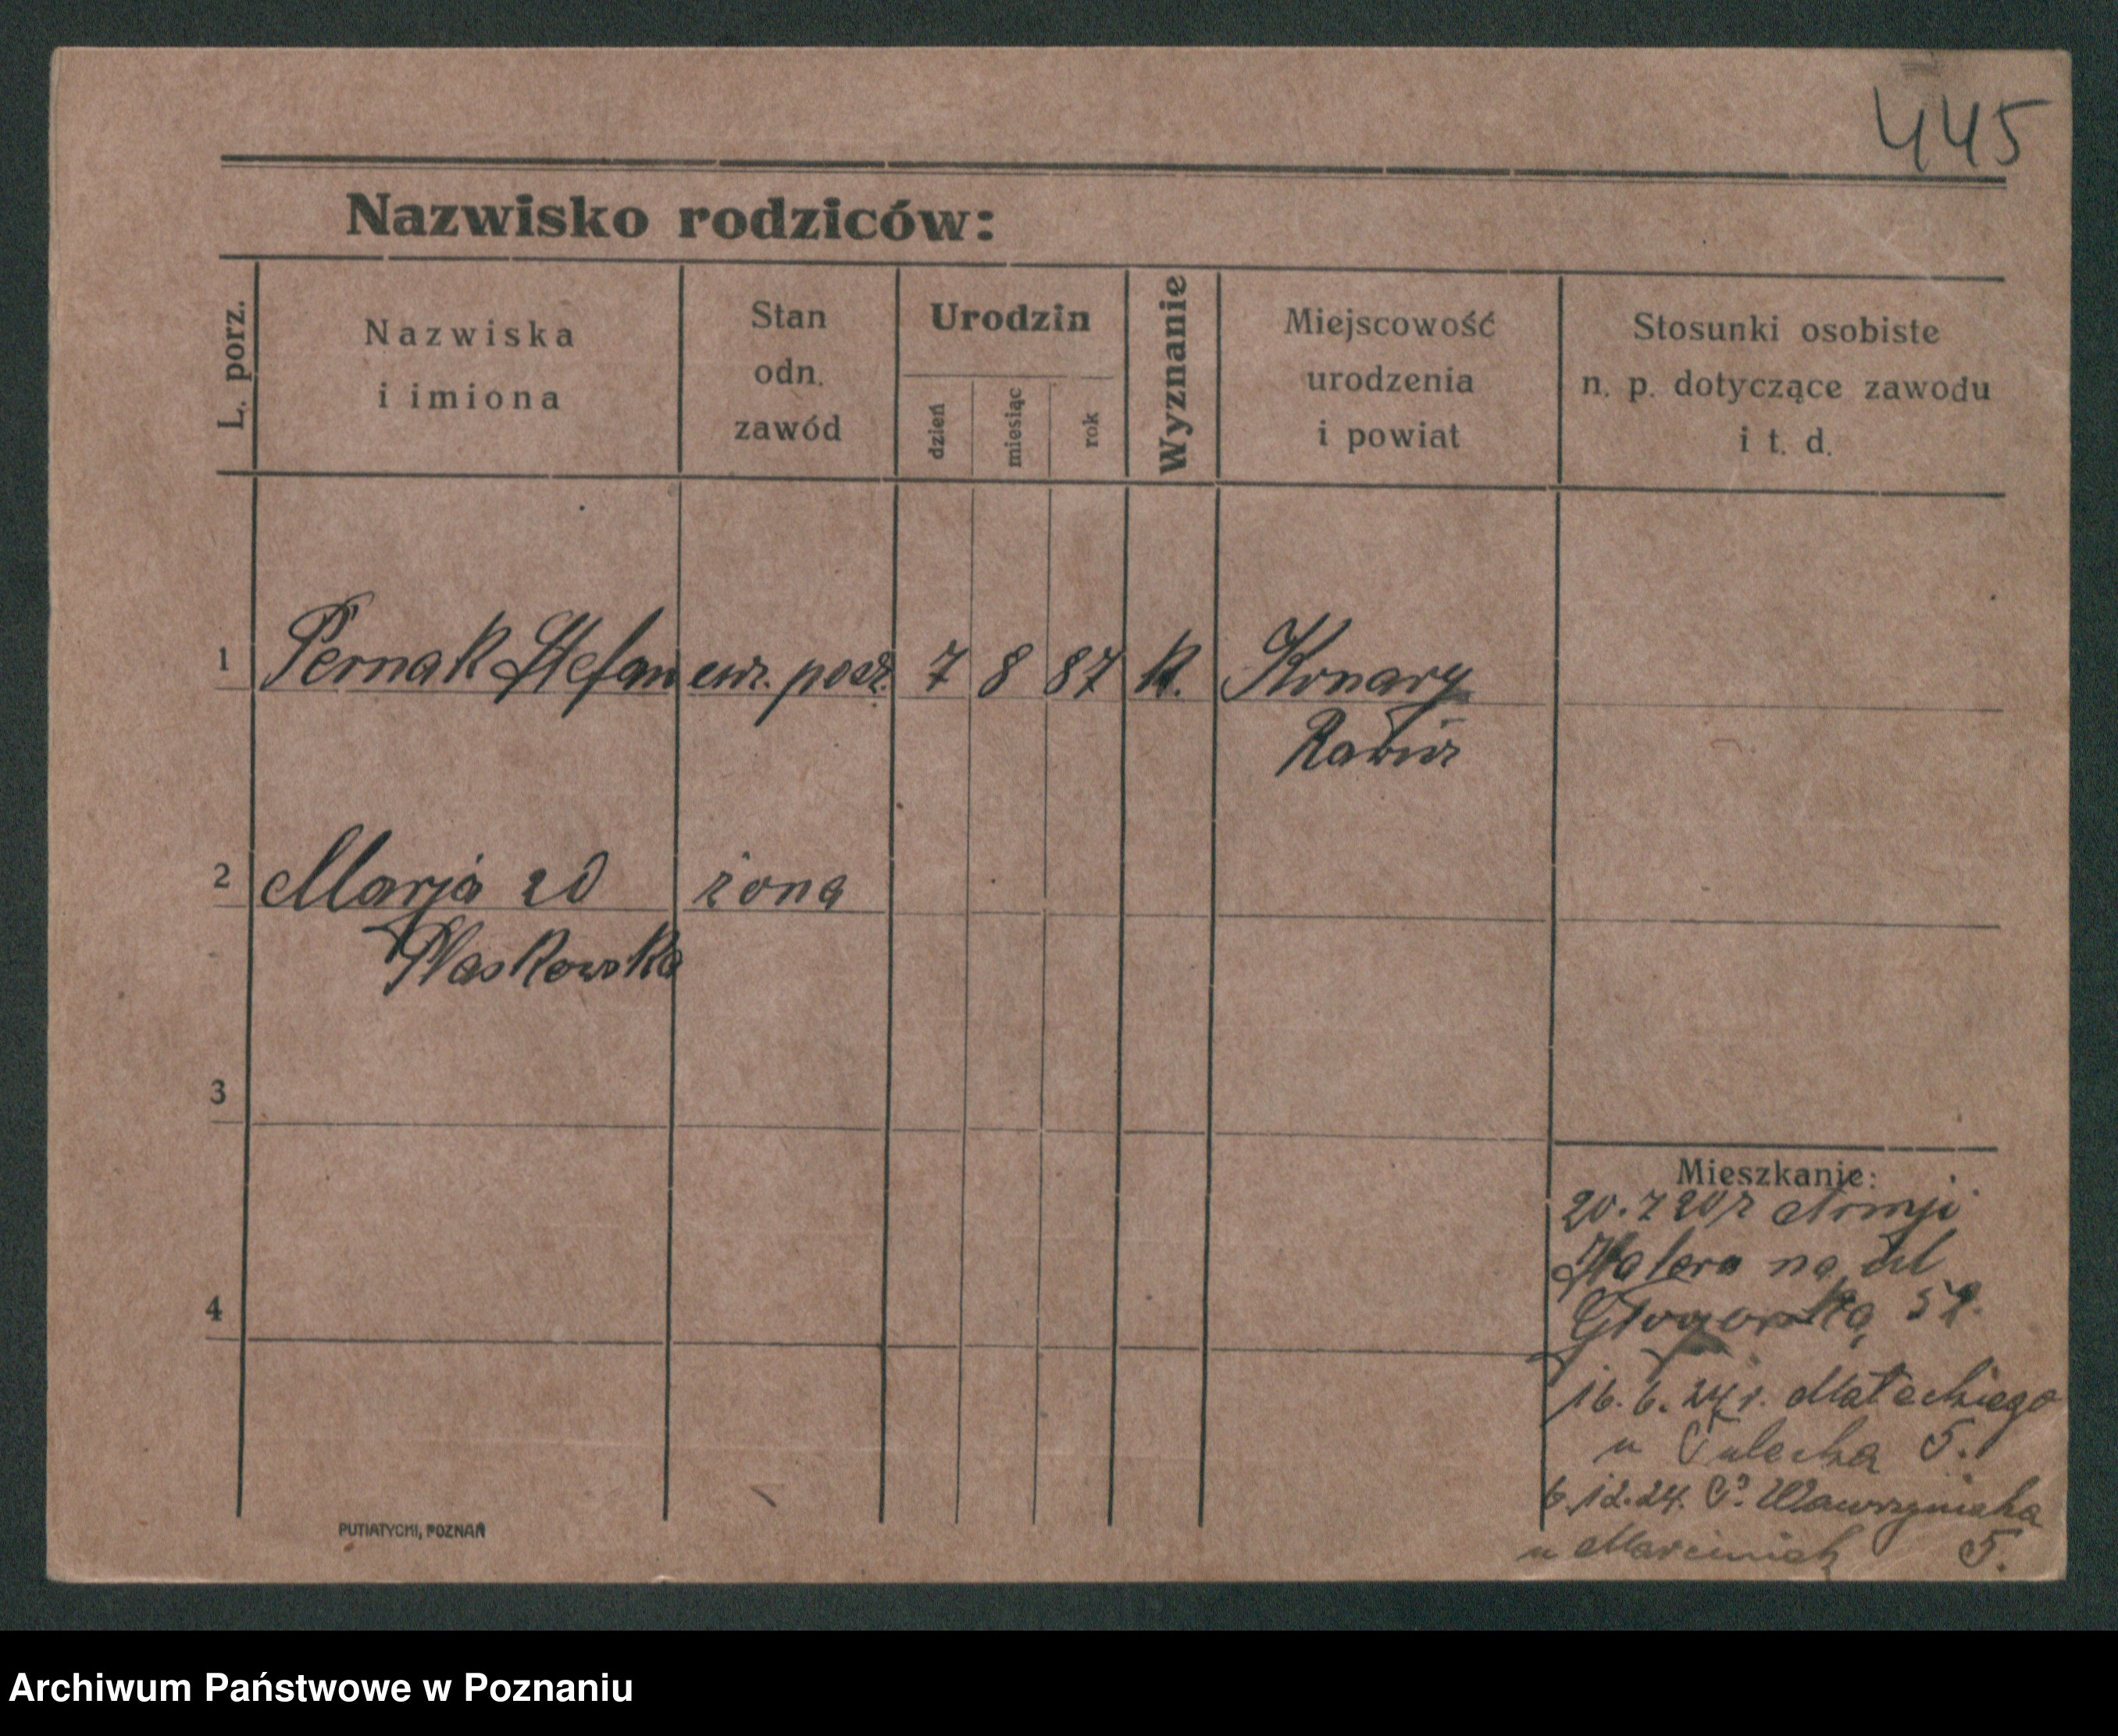 445
Nazwisko rodziców:
L. porz.
Nazwiska
i imiona
Stan
odn.
zawód
Urodzin
dzień
miesiąc
rok
Wyznanie
Miejscowość
urodzenia
i powiat
Stosunki osobiste
n. p. dotyczące zawodu
i t. d.
1 Pernak Stefan 7 8 87 K. Konary
2 Marja żona
3
4
Mieszkanie:
20.7 Armji
na
Głogowską
16.6.24 r. Małeckiego
u 5.
6.12.24. Wawrzyniaka
u Marciniak 5.
PUTIATYCKI, POZNAŃ
Archiwum Państwowe w Poznaniu